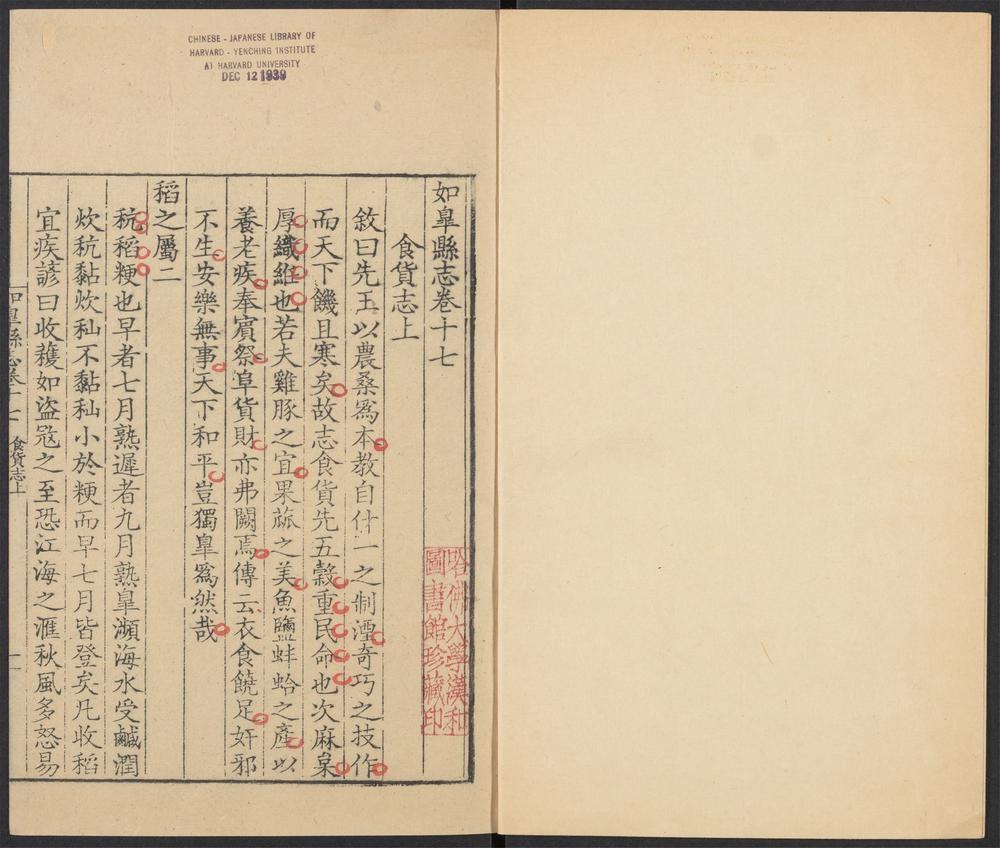 CHINESE - JAPANESE LIBRARY OF
HARVARD - YENCHING INSTITUTE
AT HARVARD UNIVERSITY
DEC 12 1939
如臯縣志卷十七
食貨志上
敘曰先王以農桑爲本教自什一之制湮奇巧之技作
而天下饑且寒矣故志食貨先五穀重民命也次麻枲
厚織維也若夫雞豚之宜果蓏之美魚鹽蚌蛤之產以
養老疾奉賓祭阜貨財亦弗闕焉傳云衣食饒足奸邪
不生安樂無事天下和平豈獨臯爲然哉
稻之屬二
秔稻粳也早者七月熟遲者九月熟臯瀕海水受鹹潤
炊秔黏炊秈不黏秈小於粳而早七月皆登矣凡收稻
宜疾諺曰收穫如盜寇之至恐江海之滙秋風多怒易
如臯縣志卷十七 食貨志上 一
哈佛大學漢和
圖書館珍藏印